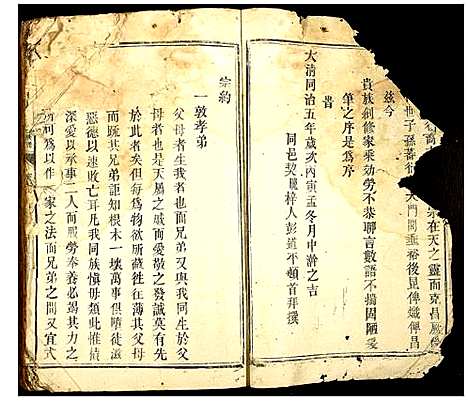 在天之靈而克昌厥
世子孫蕃衍 大門閭垂裕後昆俾熾俾昌
兹今
貴族創修家乘劾勞不恭聊言數語不揣固陋妥
筆之序是為序
旹
大清同治五年歲次丙寅孟冬月中澣之吉
同邑契 梓人彭道不頓首拜撰
宗約
一敦孝弟
父母者生我者也而兄弟又與我同生於父
母者也是天屬之戚而愛敬之發誠莫有先
於此者矣但每為物欲所蔽徃往薄其父母
而䟽其兄弟詎知根木一壞萬事俱隳徒滋
惡德以速敗亡耳凡我同族愼毋類此惟積
深愛以承事二人而服勞奉養必竭其力之
所可為以作 家之法而兄弟之間又宜式